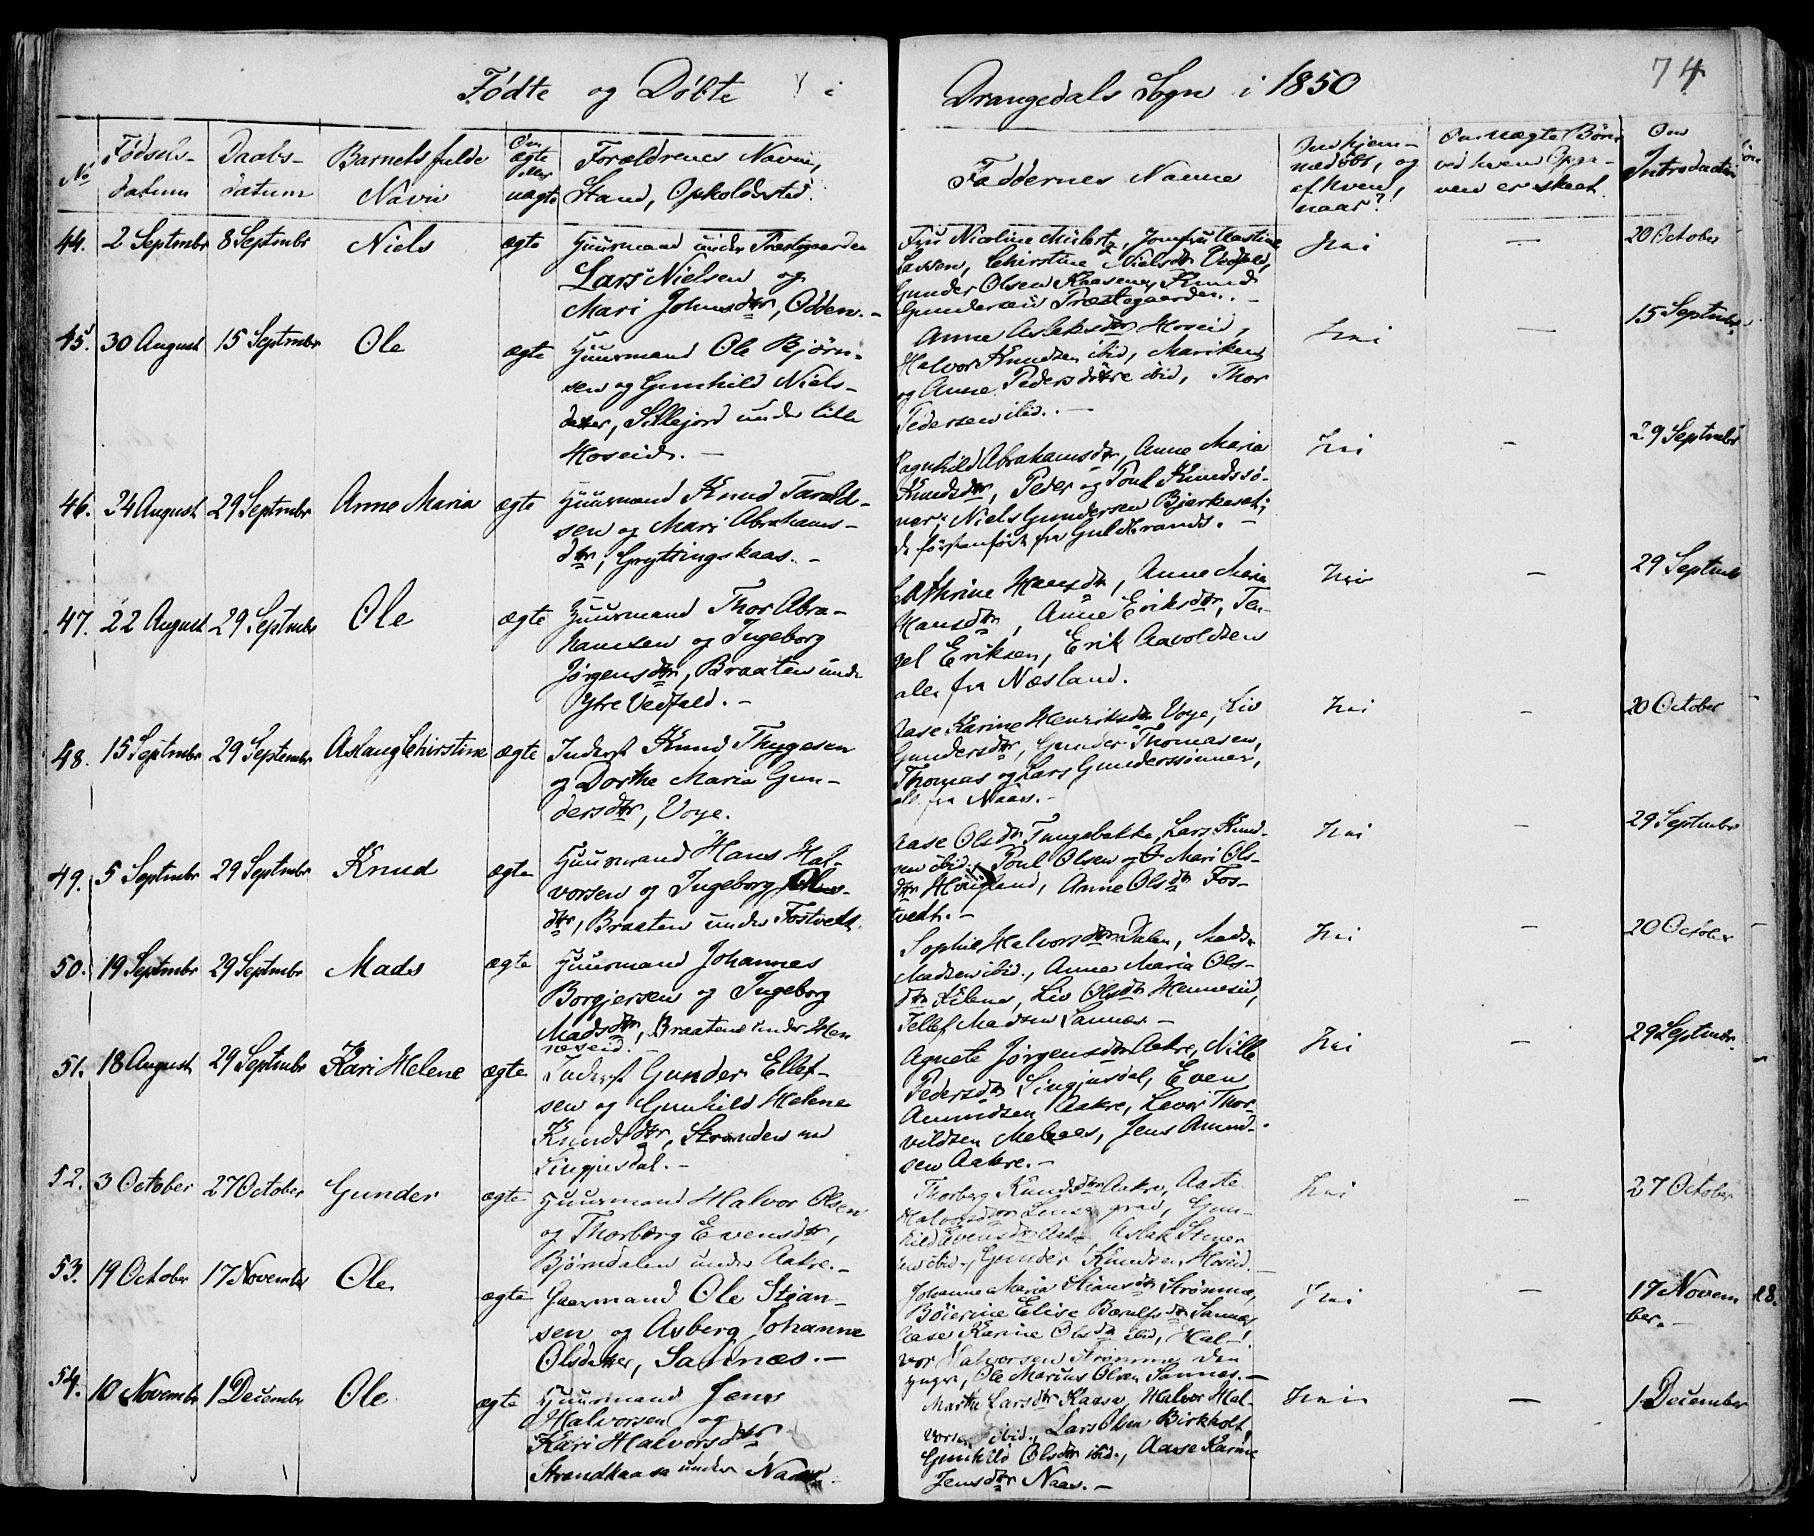 Fødte og Døbte i
Drangedals Sogn i 1850
74
No
Fødsels-
datum
Daabs-
datum
Barnets fulde
Navn
Om
ægte
eller
uægte
Forældrenes Navn,
Stand, Opholdssted.
Faddernes Navne
Om hjem-
medøbt, og
af hvem,
naar?
Om uægte Børn
ved hvem Opga-
ven er skeet.
Om
Introduction
44. 2 Septmbr 8 Septmbr Niels ægte
Huusmand under Præstegaarden
Lars Nielsen og
Mari Johnsdtr, Odden.-
Fru Nicoline Jomfru
Lassen, Chirstine Nielsdtr
Gunder Olsen Knud
Gundersen Præstegaarden.-
Nei — 20 October
45. 30 August 15 Septmbr Ole ægte
Huusmand Ole Bjørn-
sen og Gunhild Niels-
datter, Sillejord under lille
Hoseid.-
Anne Aslaksdtr Hoseid,
Halvor Knudsen ibid, Mariken
og Anne Pedersdøtre ibid, Thor
Pedersen ibid.-
Nei — 15 Septmbr
46. 24 August 29 Septmbr Anne Maria ægte
Huusmand Knud Tarald-
sen og Mari Abrahams-
dtr, Gryttingskaas.-
Ragnhild Abrahamsdtr, Anne Maria
Knudsdtr, Peder og Poul Knudssø-
ner, Niels Gundersen Bjerkeset;
de førstanførte fra
Nei - 29 Septmbr
47. 22 August 29 Septmbr Ole ægte
Huusmand Thor Abra-
hamsen og Ingeborg
Jørgensdtr, Braaten under
Ytre Vedfald.-
Cathrine Hansdtr, Anne Maria
Hansdtr, Anne Eriksdtr, Ten-
gel Eriksen, Erik Aavoldsen
alle fra Næsland.
Nei - 29 Septmbr
48. 15 Septmbr 29 Septembr Aslaug Chirstine ægte
Inderst Knud Thygesen
og Dorthe Maria Gun-
dersdtr, Voje.
Aase Karine Henriksdtr Voje, Liv
Gundersdtr, Gunder Thomasen,
Thomas og Lars Gunderssønner,
alle fra Naas.-
Nei - 20 October
49. 5 Septmbr 29 Septmbr Knud ægte
Huusmand Hans Hal-
vorsen og Ingeborg
dtr, Braaten under Fostvedt.
Aase Olsdtr Tungebakke, Lars Knud-
sen ibid., Poul Olsen og Mari Ols-
dtr Anne Olsdtr Fos-
tvedt.-
Nei - 29 Septmbr
50. 19 Septmbr 29 Septmbr Mads ægte
Huusmand Johannes
Borgjersen og Ingeborg
Madsdtr, Braaten under Hen
neseid.
Sophie Halvorsdtr Dalen, Mads
Madsen ibid., Anne Maria Ols-
dtr Kilene, Liv Olsdtr Henneseid,
Tellef Madsen Sannæs -
Nei - 20 October
51. 18 August 29 Septmbr Kari Helene ægte
Inderst Gunder Ellef-
sen og Gunhild Helene
Knudsdtr, Stranden ved
Singjusdal.-
Agnete Jørgensdtr Aakre, Nille
Pedersdtr Singjusdal, Even
Amundsen Aakre, Levor Thor-
vildsen Melaaes, Jens Amund-
sen Aakre.-
Nei - 29 Septmbr.
52. 3 October 27 October Gunder ægte
Huusmand Halvor Olsen
og Thorbørg Evensdtr,
Bjørndalen under Aakre.-
Thorberg Knudsdtr Aakre, Aaste
Halvorsdtr Gun-
hild Evensdtr Aakre, Aslak Stener
sen ibid., Gunder Knudsen Hoseid.
Nei - 27 October
53. 19 October 17 November Ole ægte
Gaarmand Ole Stian-
sen og Asberg Johanne
Olsdatter, Sannæs.-
Johanne Maria Stiansdtr Strømme,
Bøierine Elise Sannæs,
Aase Karine Olsdtr ibid, Hal-
vor Halvorsen Strømme den
yngre, Ole Marius Olsen Sannes.-
Nei - 17 Novem
ber.-
54. 10 Novembr 1 December Ole ægte
Huusmand Jens
Halvorsen og
Kari Halvorsdtr
Strandkaasa under Naas.
Marthe Larsdtr Kaasa, Halvor Hal-
vorsen ibid., Lars Olsen Birkholt
Gunhild Olsdtr ibid., Aase Karine
Jensdtr Naas.-
Nei — 1 December